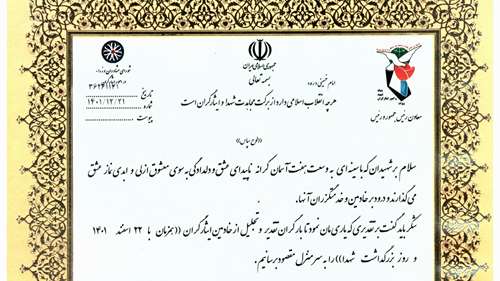 جمهوری اسلامی ایران
بسمه تعالی
امام خمینی (ره):
هر چه انقلاب اسلامی دارد از برکت مجاهدت شهدا و ایثارگران است
معاون رئیس جمهور و رئیس
تاریخ
شماره ۱۴۰۱/۱۲/۲۱
پیوست
((لوح سپاس))
سلام بر شهیدان که با سینه ای به وسعت هفت آسمان کرانه ناپیدای عشق و دلدادگی به سوی معشوق ازلی و ابدی نماز عشق
می گذارند و درود بر خادمین و خدمتگزاران آنها.
شکر باید گفت بر تقدیری که یاری مان نمود تا بار گران تقدیر و تجلیل از خادمین ایثارگران ((همزمان با ۲۲ اسفند ۱۴۰۱
و روز بزرگداشت شهدا)) را به سر منزل مقصود برسانیم.